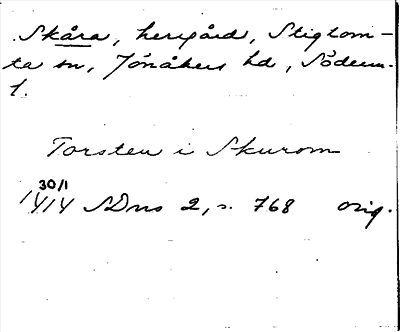 Skåra, herrgård, Stigtom-
ta sn, Jönåkers hd, Söderm.
l.
Torsten i Skurom
30/1
1414 SDns 2, s. 768 orig.